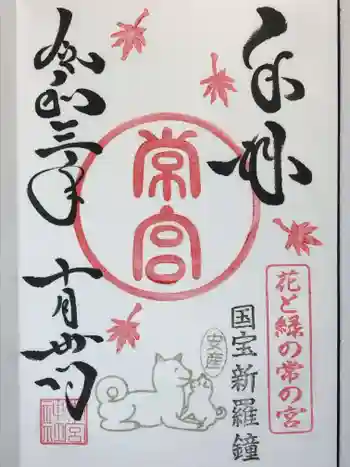 奉拝
花と緑の常の宮
国宝新羅鐘
常宮
安産
令和三年
十月廿一日
常宮
神社